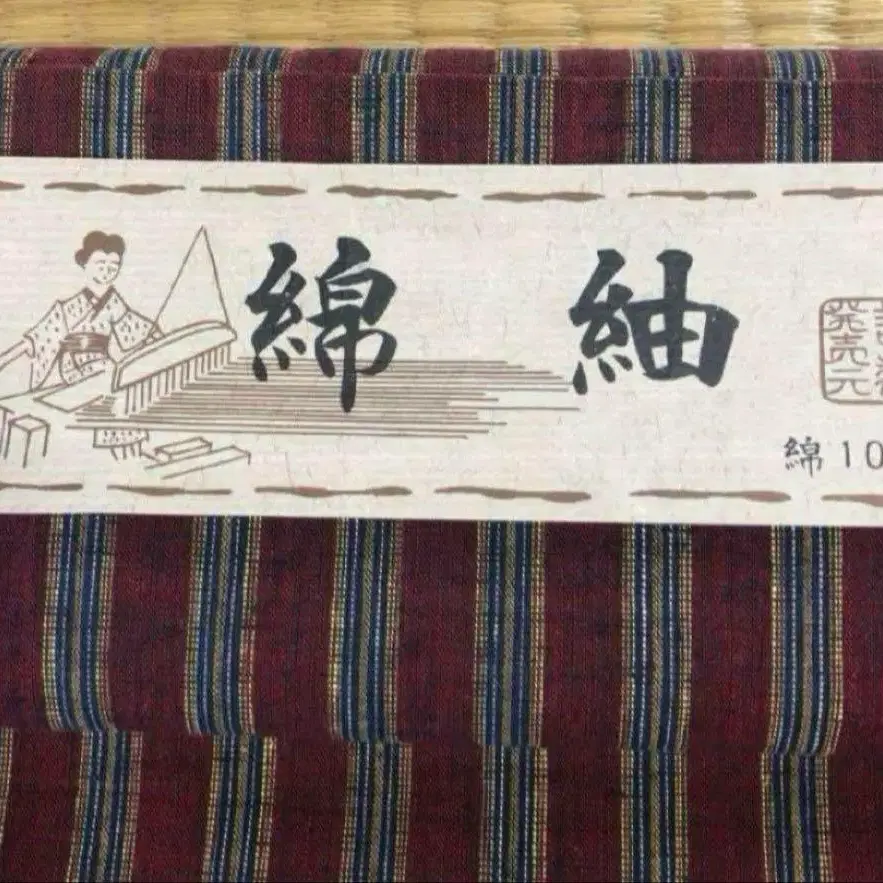 綿紬
発売元
綿10